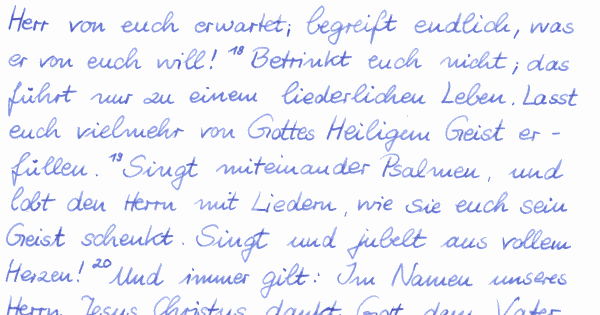 Herr von euch erwartet; begreift endlich, was
er von euch will! 18 Betrinkt euch nicht; das
führt nur zu einem liederlichen Leben. Lasst
euch vielmehr von Gottes Heiligem Geist er-
füllen. 19 Singt miteinander Psalmen, und
lobt den Herrn mit Liedern, wie sie euch sein
Geist schenkt. Singt und jubelt aus vollem
Herzen! 20 Und immer gilt: Im Namen unseres
Herrn Jesus Christus dankt Gott, dem Vater